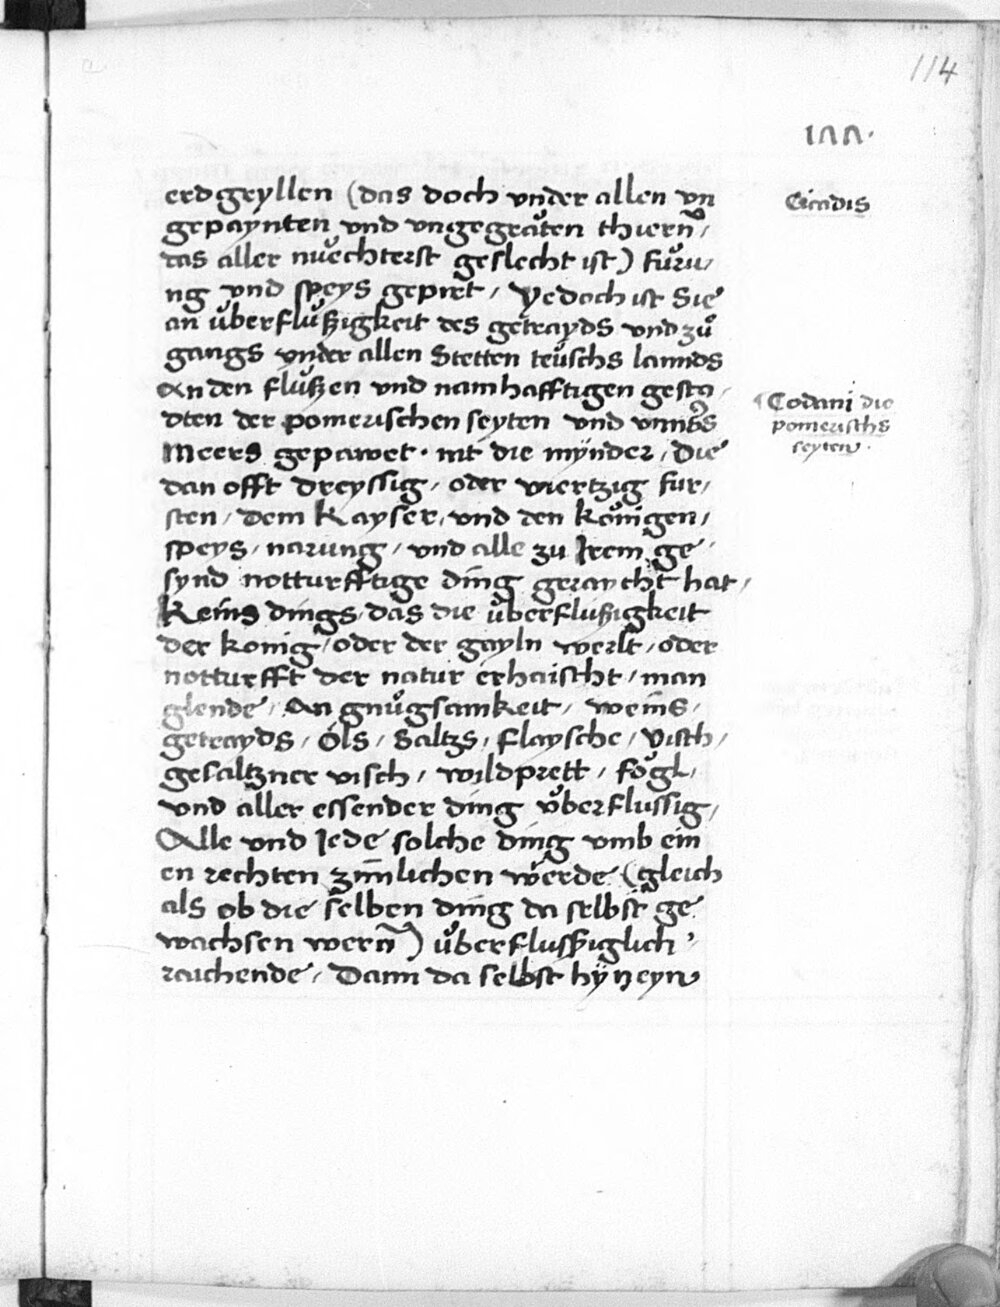 114
erdgeyllen (das doch vnder allen vn
Cicadis
gepaynten vnd vngegraͤten thiern̄,
das aller nuͤechterst geslecht ist) fuͤru,
ng vnd speys gepirt, Yedoch ist Sie
an uͤberfluͤßigkeit des getrayds vnd zuͦ
gangs vnder allen Stetten teuͤschs lannds
An den fluͤßen vnd namhafftigen gesta,
dten der pomerischen seyten vnd
Codani die
pomerischs
seyten.
Meers gepawet. nit die mynder, die
dan offt dreyssig, oder viertzig fur,
sten, dem Kayser, vnd den koͤnigen,
speys, narung, vnd alle zu Irem ge,
synd notturfftige ding geraycht hat,
Keins dings, das die uͤberflußigkeit
der konig, oder der gayln werlt, oder
notturfft der natur erhaischt, man
glende, An gnuͤgsamkeit, weins,
getrayds, Ols, Saltzs, flaysche, Visch,
gesaltzner visch, wildprett, foͤgl,
vnd aller essender ding vͤberflussig,
Alle vnd Jede solche ding vmb ein
en rechten zim̄lichen werde (gleich
als ob die selben ding da selbst ge
wachsen wern̄) uͤberflussiglich,
raichende, Dann da selbst hyneyn